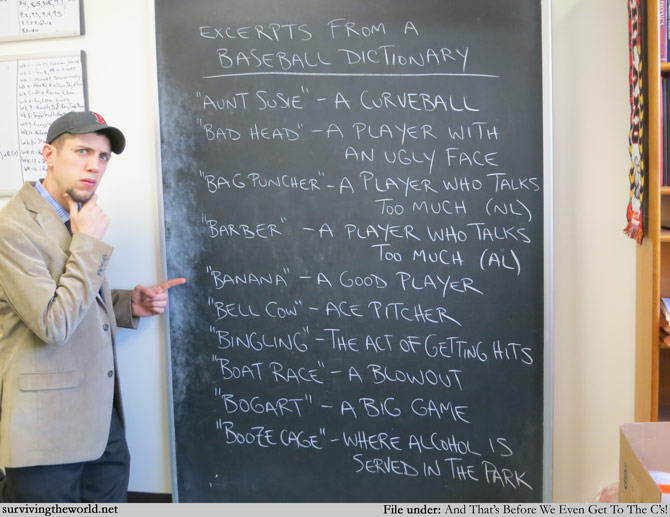 EXCERPTS FROM A
BASEBALL DICTIONARY
"AUNT SUSIE" - A CURVEBALL
"BAD HEAD" - A PLAYER WITH
AN UGLY FACE
"BAG PUNCHER" - A PLAYER WHO TALKS
TOO MUCH (NL)
"BARBER" - A PLAYER WHO TALKS
TOO MUCH (AL)
"BANANA" - A GOOD PLAYER
"BELL COW" - ACE PITCHER
"BINGLING" - THE ACT OF GETTING HITS
"BOAT RACE" - A BLOWOUT
"BOGART" - A BIG GAME
"BOOZE CAGE" - WHERE ALCOHOL IS
SERVED IN THE PARK
survivingtheworld.net File under: And That's Before We Even Get To The C's!